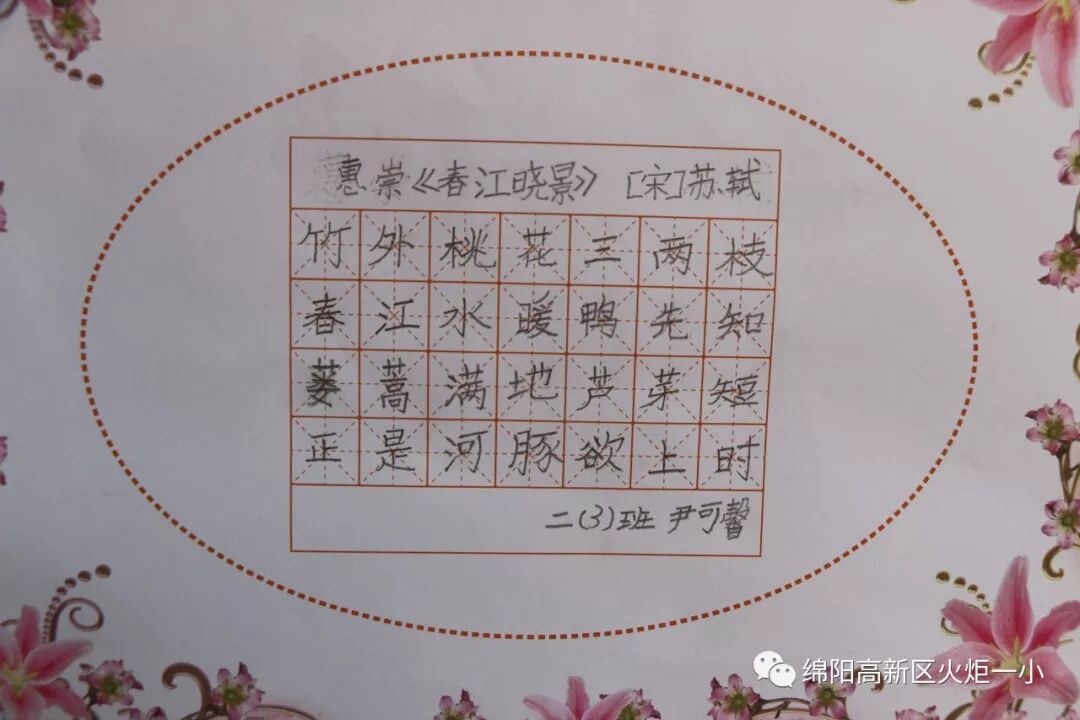 惠崇《春江晓景》 [宋]苏轼
竹外桃花三两枝
春江水暖鸭先知
蒌蒿满地芦芽短
正是河豚欲上时
二(3)班 尹可馨
绵阳高新区火炬一小